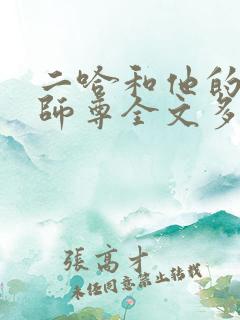 二哈和他的
師尊全文多
張高才
未经同意禁止转载